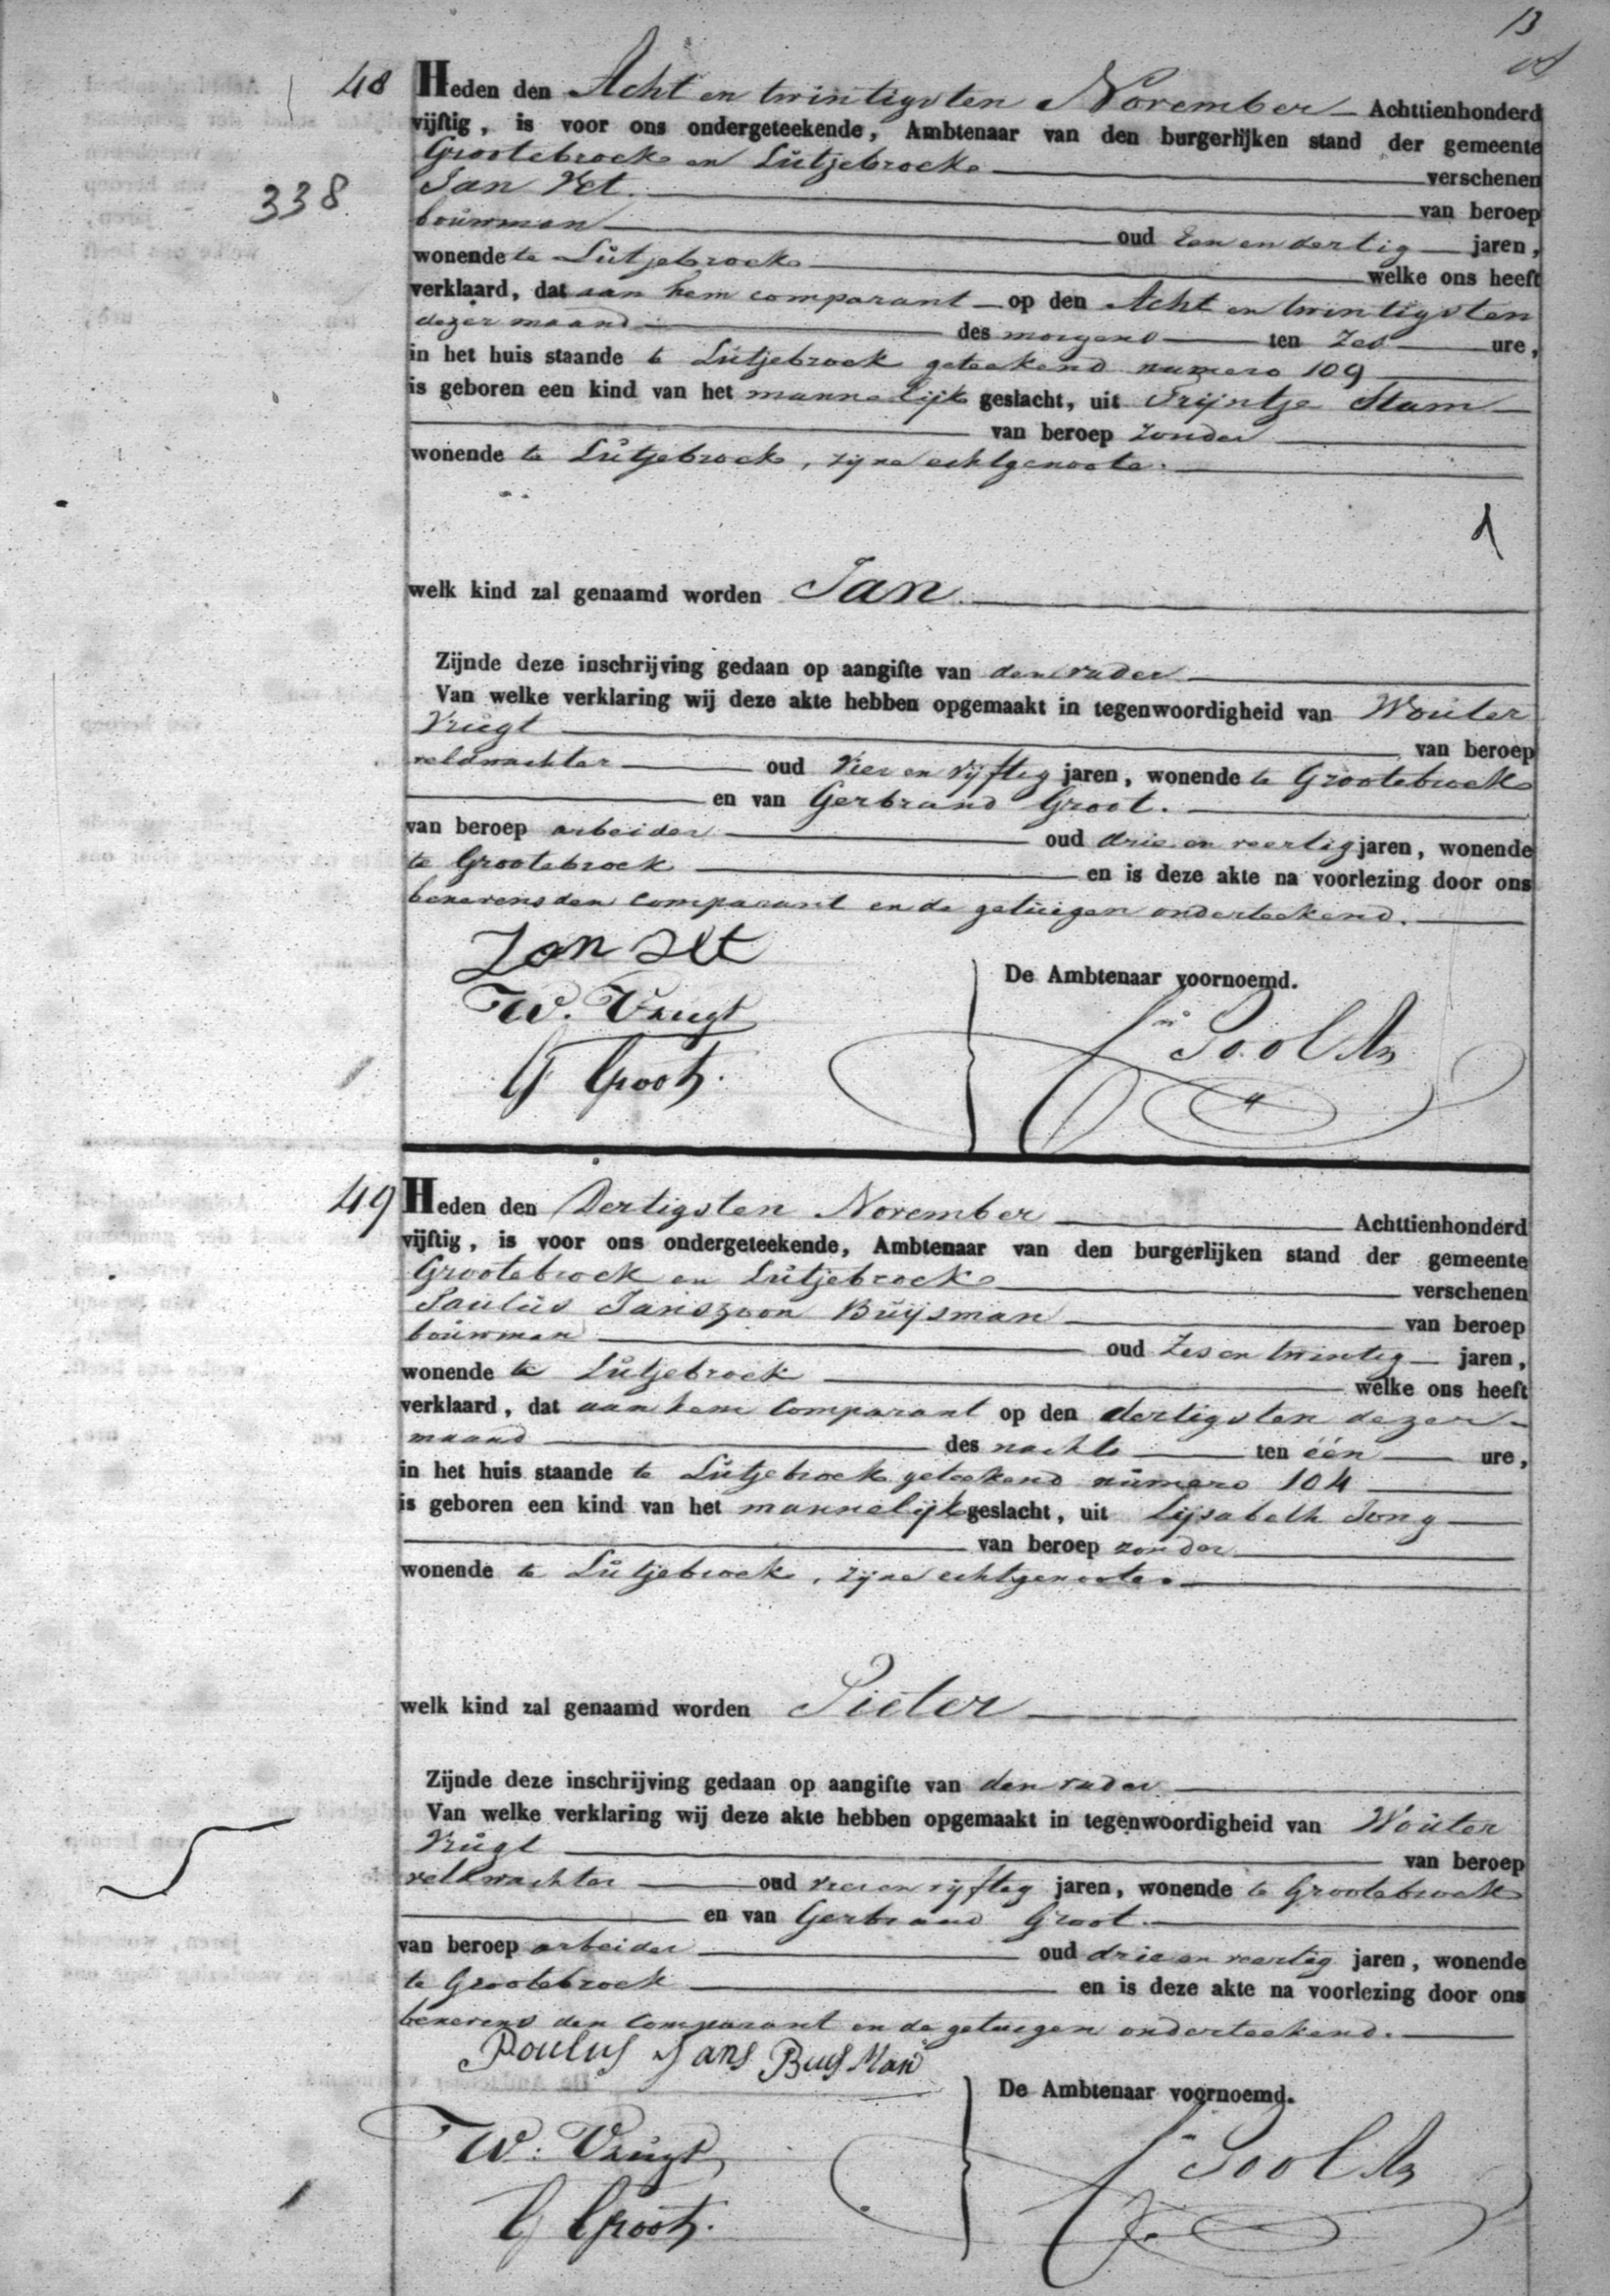 13
48 Heden den Acht en twintigsten November Achttienhonderd
vijftig, is voor ons ondergeteekende, Ambtenaar van den burgerlijken stand der gemeente
Grootebroek en Lutjebroek verschenen
338
Jan Vet van beroep
bouwman oud Een en dertig jaren,
wonende te Lutjebroek welke ons heeft
verklaard, dat aan hem comparant op den Acht en twintigsten
dezer maand des morgens ten Zes ure,
in het huis staande te Lutjebroek geteekend numero 109
is geboren een kind van het mannelijk geslacht, uit Trijntje Stam
van beroep zonder
wonende te Lutjebroek, zijne echtgenoote.
welk kind zal genaamd worden Jan
Zijnde deze inschrijving gedaan op aangifte van den vader
Van welke verklaring wij deze akte hebben opgemaakt in tegenwoordigheid van Wouter
Vrugt van beroep
veldwachter oud Vier en vijftig jaren, wonende te Grootebroek
en van Gerbrand Groot.
van beroep arbeider oud drie en veertig jaren, wonende
te Grootebroek en is deze akte na voorlezing door ons
benevens den comparant en de getuigen onderteekend.
Jan Vet
De Ambtenaar voornoemd.
W. Vrugt
Pool
G Groot.
49 Heden den Dertigsten November Achttienhonderd
vijftig, is voor ons ondergeteekende, Ambtenaar van den burgerlijken stand der gemeente
Grootebroek en Lutjebroek verschenen
Paulus Janszoon Buijsman van beroep
bouwman oud Zes en twintig jaren,
wonende te Lutjebroek welke ons heeft
verklaard, dat aan hem Comparant op den dertigsten dezer
maand des nachts ten één ure,
in het huis staande te Lutjebroek geteekend numero 104
is geboren een kind van het mannelijk geslacht, uit Lijsabeth Jong
van beroep zonder
wonende te Lutjebroek, zijne echtgenoote.
welk kind zal genaamd worden Pieter
Zijnde deze inschrijving gedaan op aangifte van den vader
Van welke verklaring wij deze akte hebben opgemaakt in tegenwoordigheid van Wouter
Vrugt van beroep
veldwachter oud vier en vijftig jaren, wonende te Grootebroek
en van Gerbrand Groot.
van beroep arbeider oud drie en veertig jaren, wonende
te Grootebroek en is deze akte na voorlezing door ons
benevens den Comparant en de getuigen onderteekend.
Poulus Jans Buisman
De Ambtenaar voornoemd.
W. Vrugt
Pool
G Groot.